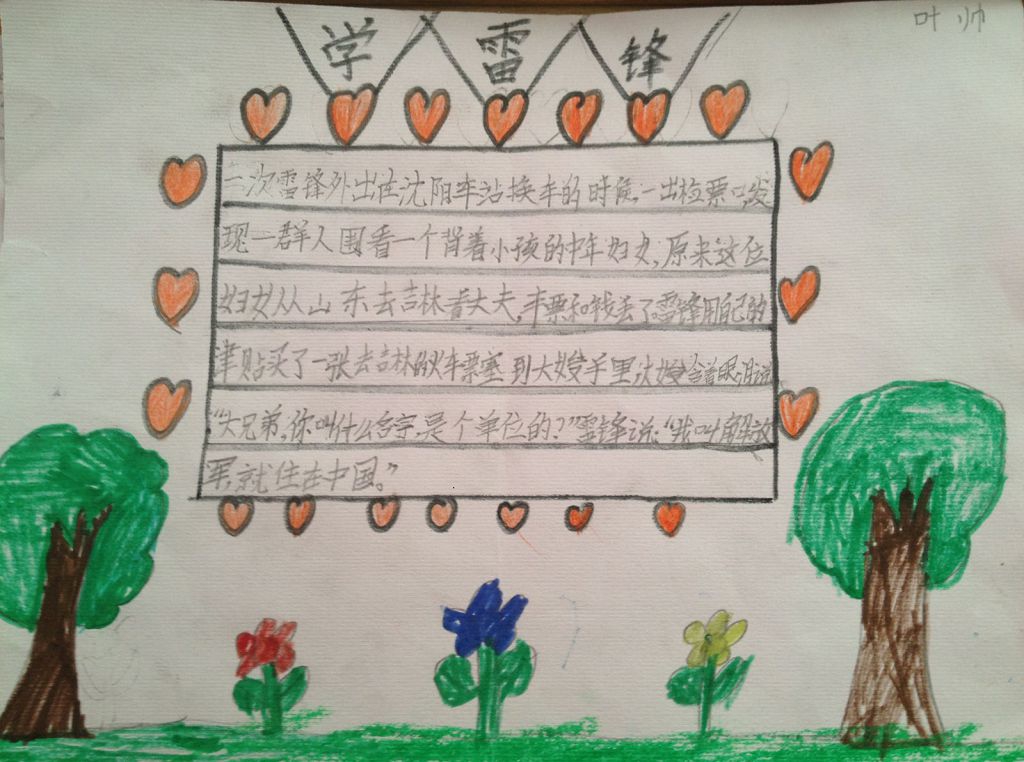 叶帅
学雷锋
一次雷锋外出在沈阳车站换车的时候,一出检票口,发
现一群人围看一个背着小孩的中年妇女,原来这位
妇女从山东去吉林看丈夫,车票和钱丢了雷锋用自己的
津贴买了一张去吉林的火车票塞到大嫂手里大嫂含着眼泪说
“大兄弟,你叫什么名字,是个单位的?”雷锋说:“我叫解放
军,就住在中国。”